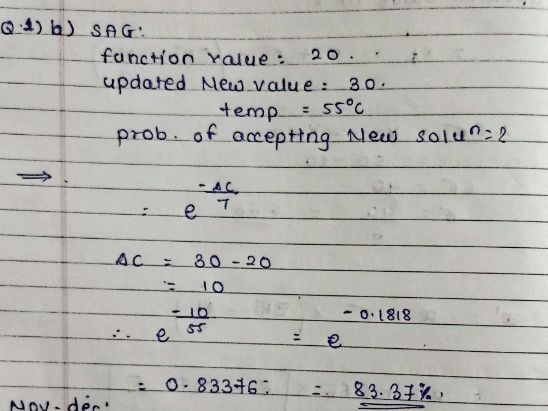 Q.1) b) SAG:
function value: 20.
updated New value: 30.
temp = 55°C
prob. of accepting New soluⁿ = ?
⇒
= e^(-ΔC/T)
ΔC = 30 - 20
= 10
∴ e^(-10/55) = e^(-0.1818)
= 0.83376 = 83.37%.
Nov-dec: